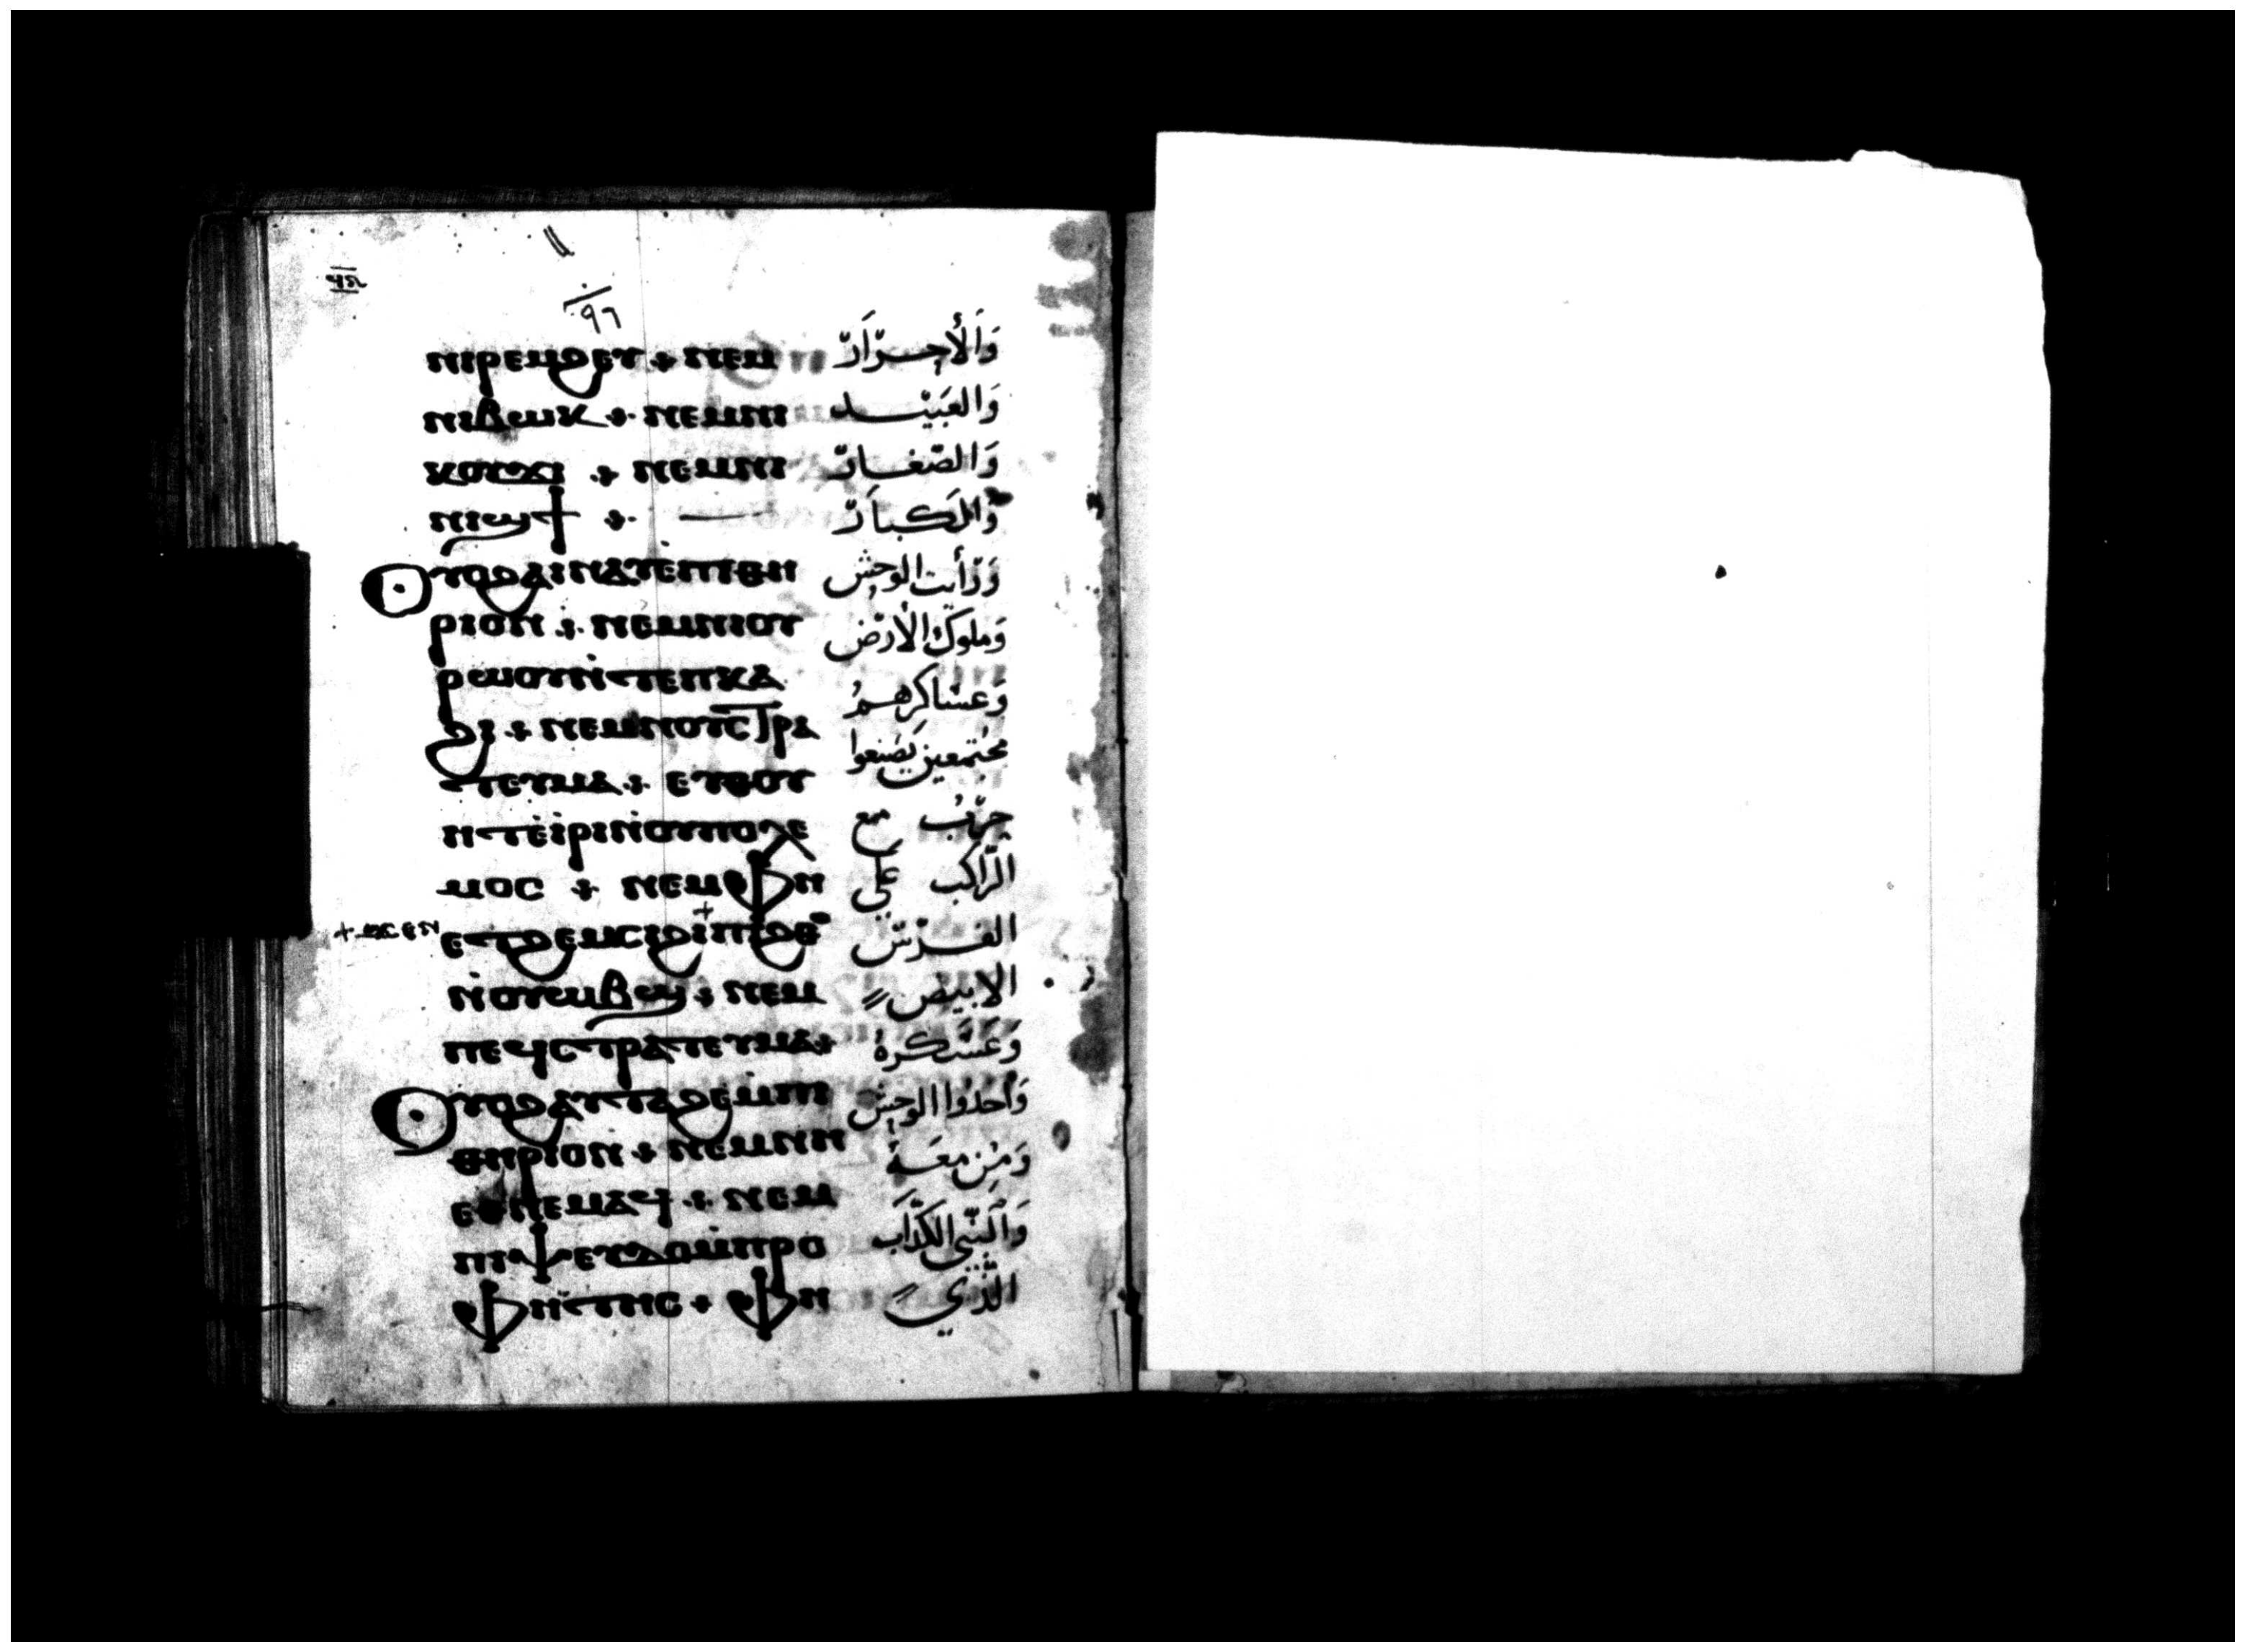 ϥⲋ
٩٦
ⲛⲓⲣⲉⲙϩⲉⲩ + ⲛⲉⲙ وَالْأَحرَار
ⲛⲓⲃⲱⲕ + ⲛⲉⲙⲛⲓ وَالعَبيْد
ⲕⲟⲩϫⲓ + ⲛⲉⲙⲛⲓ وَالصّغَار
ⲛⲓϣϯ + وَالكبَار
ⲟⲩⲟϩⲁⲓⲛⲁⲩⲉ̀ⲡⲓⲑⲏ وَرَأيت الوحش
ⲣⲓⲟⲛ + ⲛⲉⲙⲛⲓⲟⲩ وَملوك الأرض
ⲣⲱⲟⲩⲛ̀ⲧⲉⲡⲕⲁ وَعسَاكرهمُ
ϩⲓ + ⲛⲉⲙⲛⲟⲩⲥⲧⲣⲁ مجتمعين يَصنعوا
ⲧⲉⲩⲙⲁ + ⲉⲩⲑⲟⲩ حربُ مع
ⲏⲧⲉ̀ⲓ̀ⲣⲓⲛ̀ⲟⲩⲡⲟⲗⲉ الرَّاكب على
ⲙⲟⲥ + ⲛⲉⲙⲫⲏ الفرس
+ϫⲉⲛ ⲉⲧϩⲉⲙⲥⲓϩⲓⲡⲓϩⲑⲟ الابيض
ⲛ̀ⲟⲩⲱⲃϣ + ⲛⲉⲙ وَعَسَكرهُ
ⲡⲉϥⲥⲧⲣⲁⲧⲉⲩⲙⲁ + وَأخذُوا الوحش
ⲟⲩⲟϩⲁⲩⲧⲁϩⲉⲙⲡⲓ وَمن معَهُ
ⲑⲏⲣⲓⲟⲛ + ⲛⲉⲙⲛⲏ وَالنّبى الكذَّاب
ⲉⲑⲛⲉⲙⲁϥ + ⲛⲉⲙ الذّي
ⲡⲓⲯⲉⲩⲇⲟⲙ̀ⲡⲣⲟ
ⲫⲏⲧⲏⲥ + ⲫⲏ